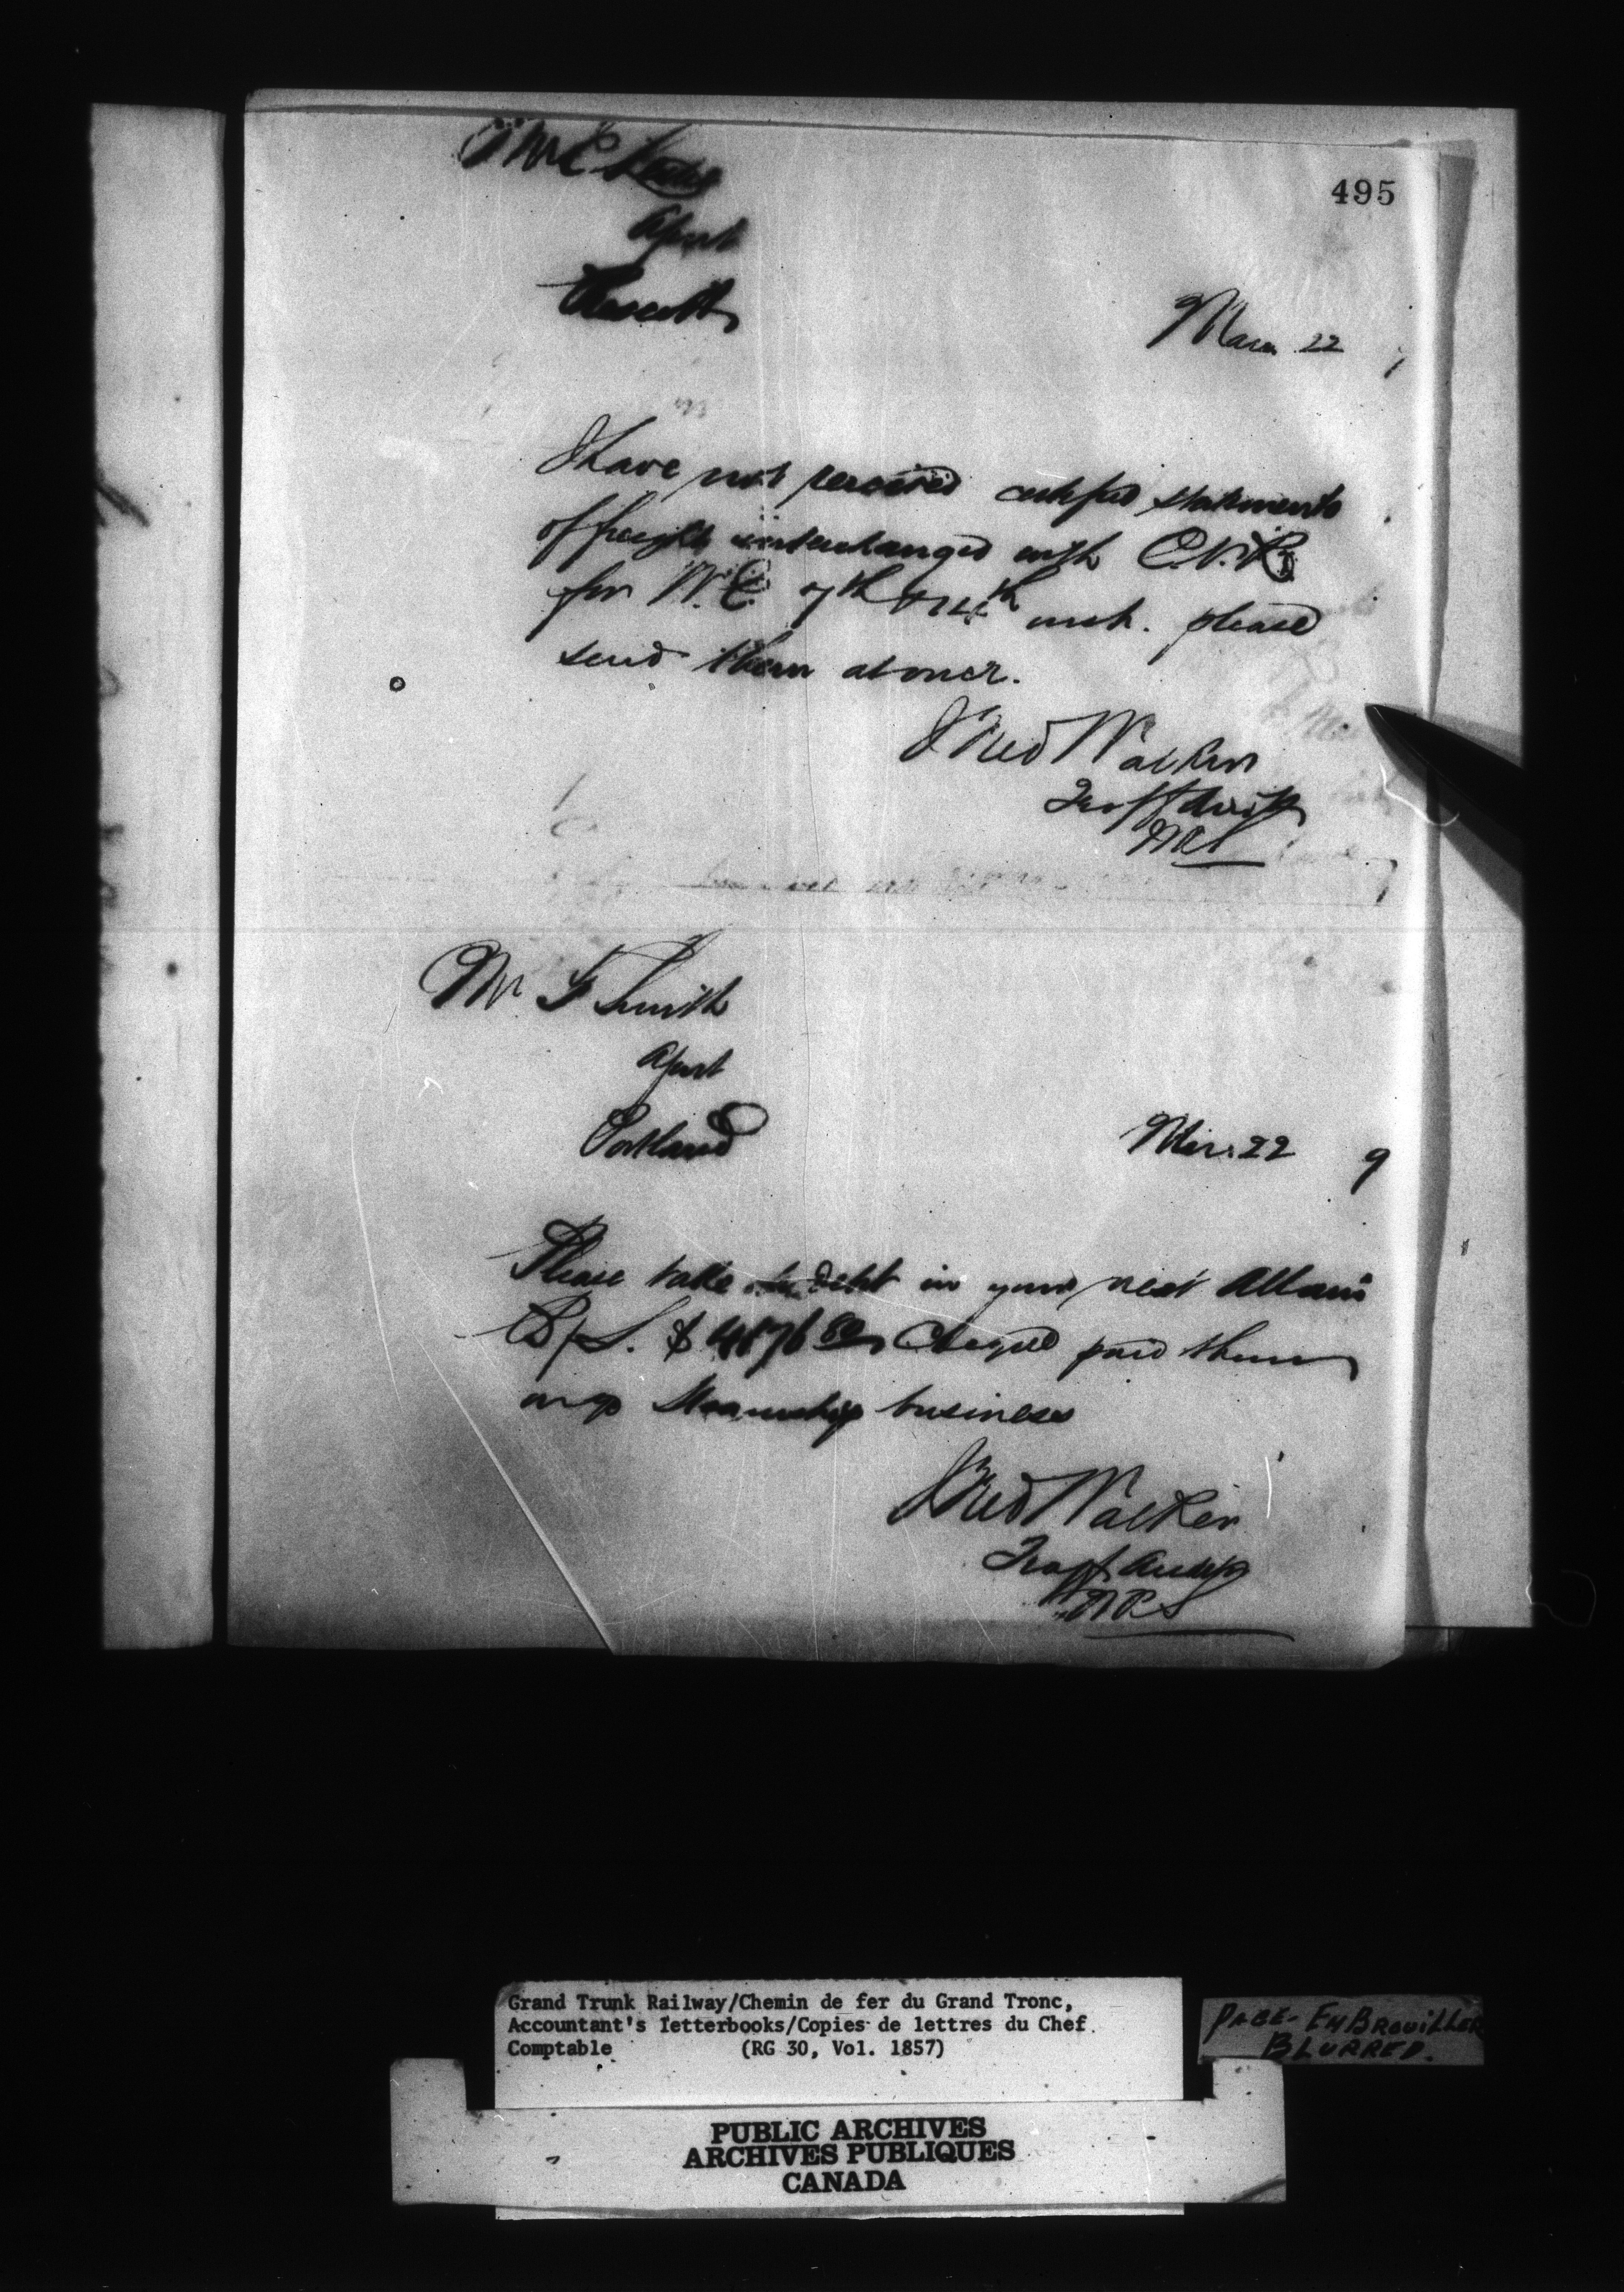 495
Agent
Prescott
Mar 22
I have not received certified statements
of freight interchanged with C.V.R
for W.E. 7th & 14th inst. please
send them at once.
Fred Walker
Traff Audit
Mr F Smith
Agent
Portland
Mar. 22 9
Please take debt in your next Allans
B/S. $ Charges paid them
on steamship business
Fred Walker
Traff Audr
Grand Trunk Railway/Chemin de fer du Grand Tronc,
Accountant's letterbooks/Copies de lettres du Chef
Comptable (RG 30, Vol. 1857)
PAGE- EMBROUILLER
BLURRED.
PUBLIC ARCHIVES
ARCHIVES PUBLIQUES
CANADA